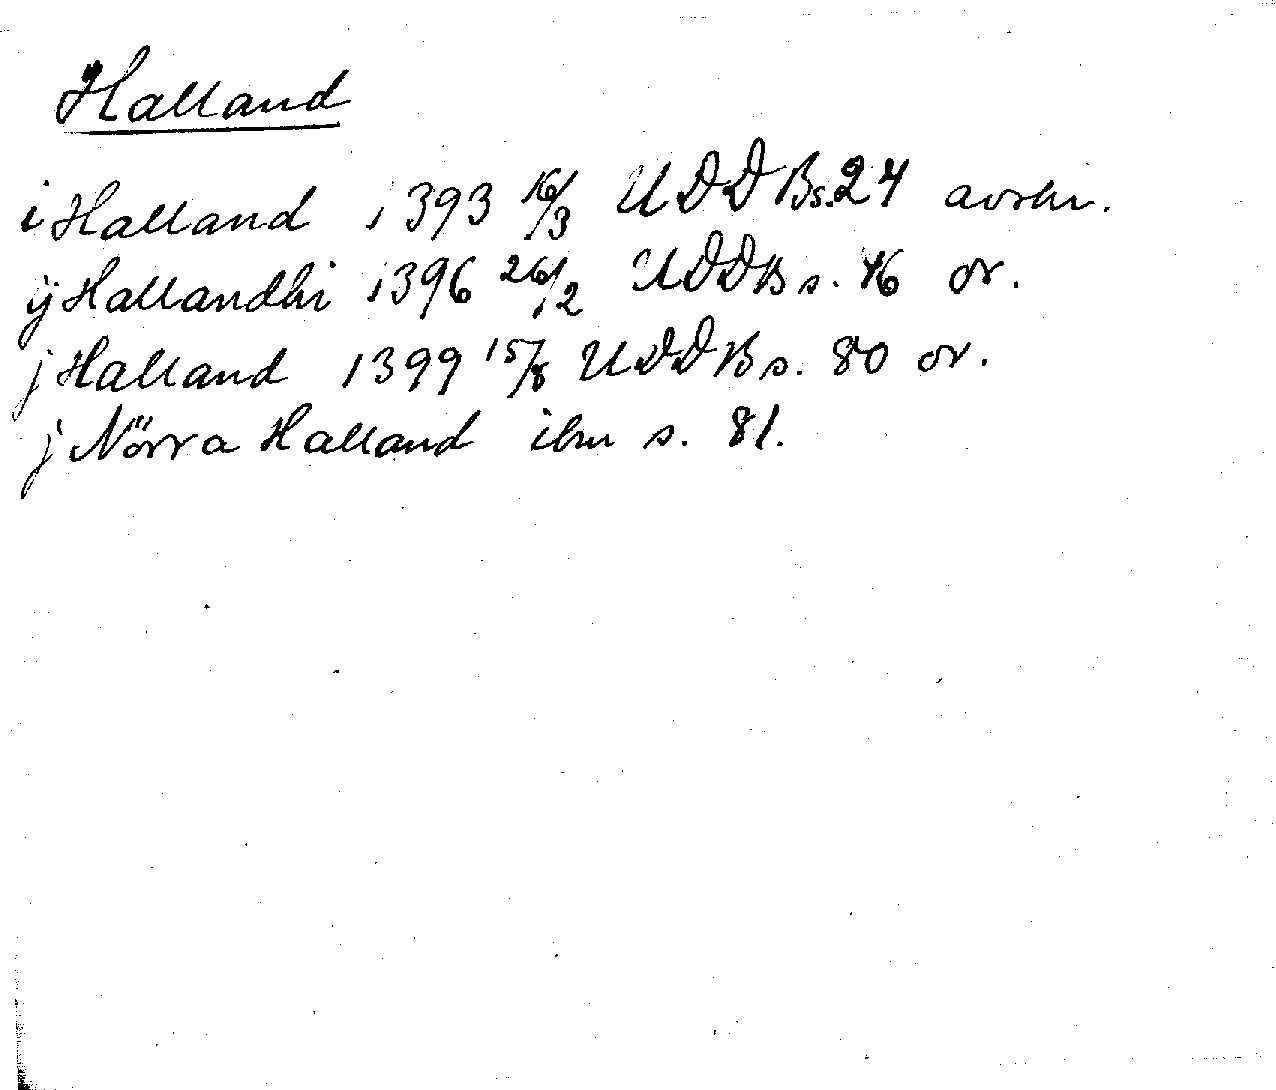 Halland
i Halland 1393 16/3 UDDB s. 24 avskr.
ij Hallandhi 1396 26/2 UDDB s. 46 or.
j Halland 1399 15/8 UDDB s. 80 or.
j Nörra Halland ibm s. 81.